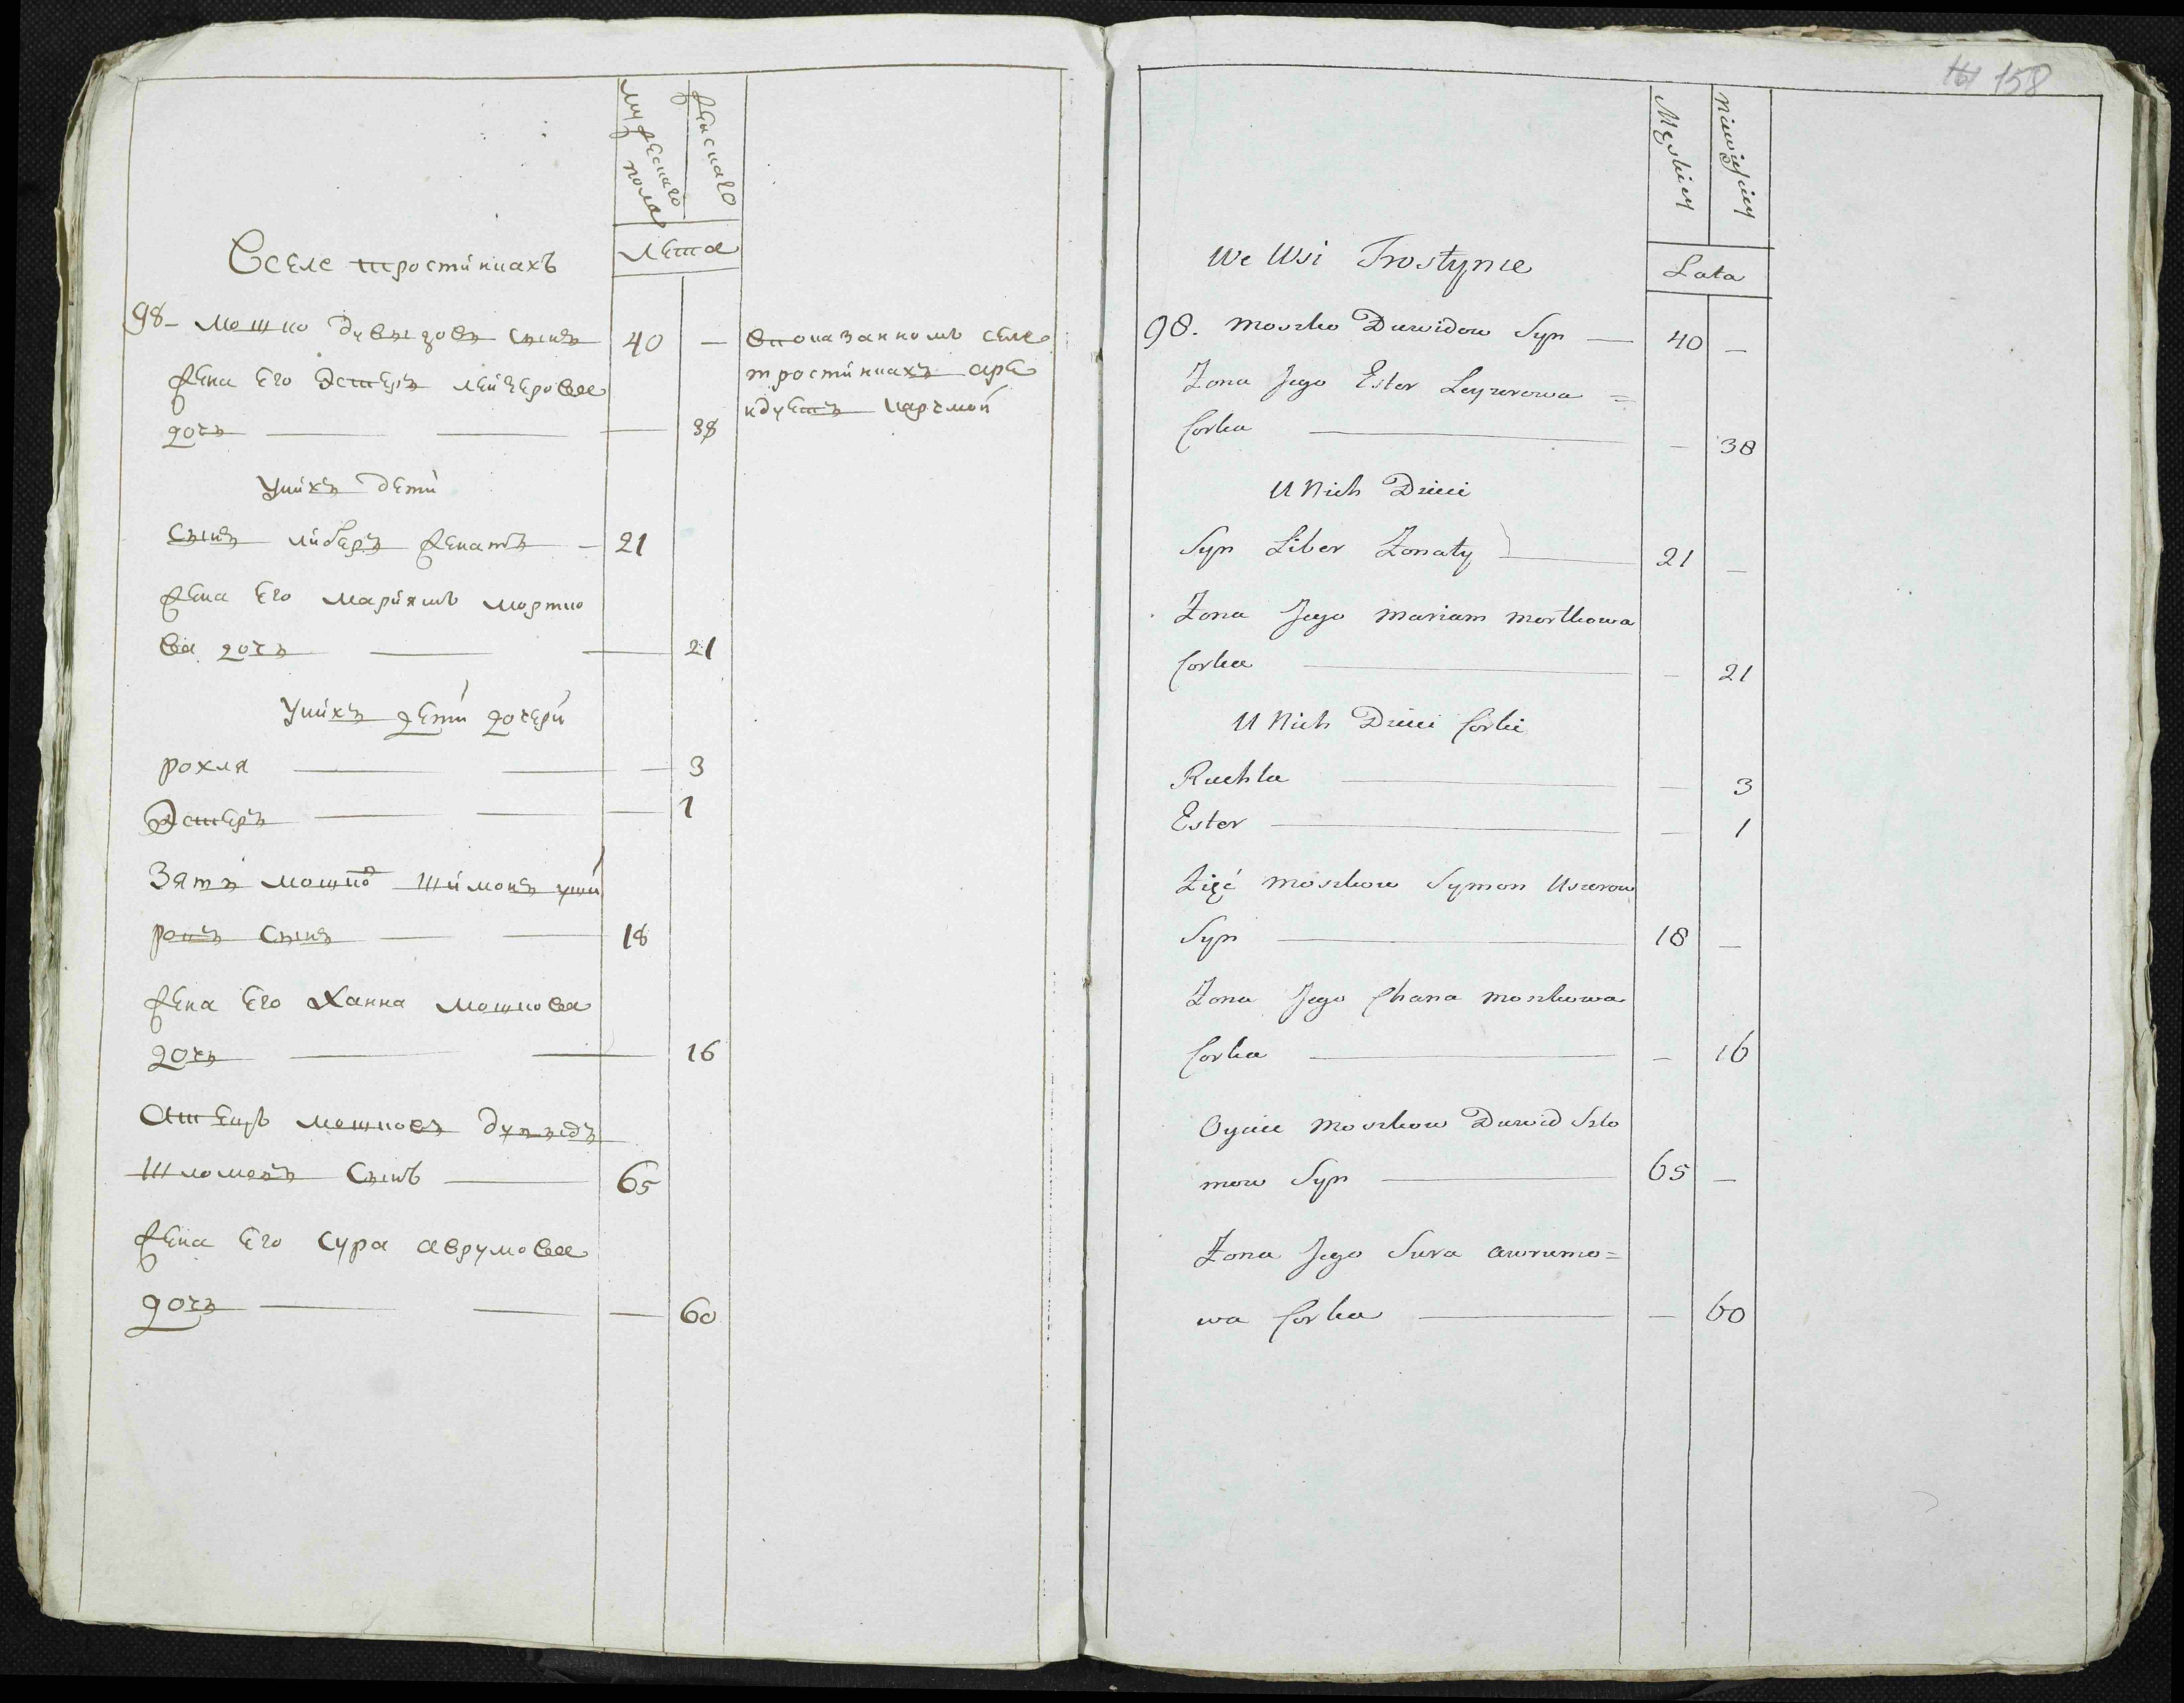 мужескаго пола
женскаго
Вселе тростинкахъ
лета
98- мошко дувыдовъ сынъ 40 —
жена его эстеръ лейзерова
дочь — 38
впоказанномъ селе
тростинкахъ аре
ндуетъ карчмой
Унихъ дети
сынъ либеръ женатъ — 21
жена его мариямъ мортко
ва дочь — 21
Унихъ дети дочери
рохля — 3
Эстеръ — 1
Зять мошков шимонъ
ровъ сынъ — 18
жена его Ханна мошкова
дочь — 16
Отецъ мошковъ дувыдъ
Шломовъ Сынъ — 65
жена его сура аврумова
дочь — 60
161 158
Męskiey
niewieskiey
We Wsi Trostynie
Lata
98. Moszko Duwidow Syn — 40 —
Zona Jego Ester Leyzerowa =
Corka — 38
U Nich Dzieci
Syn Liber Zonaty — 21 —
Zona Jego Mariam Mortkowa
Corka — 21
U Nich Dzieci Corki
Ruchla — 3
Ester — 1
Zięć Moszkow Symon Uszerow
Syn — 18 —
Zona Jego Chana Moszkowa
Corka — 16
Oyciec Moszkow Duwid Szlo
mow Syn — 65 —
Zona Jego Sura Awrumo=
wa Corka — 60